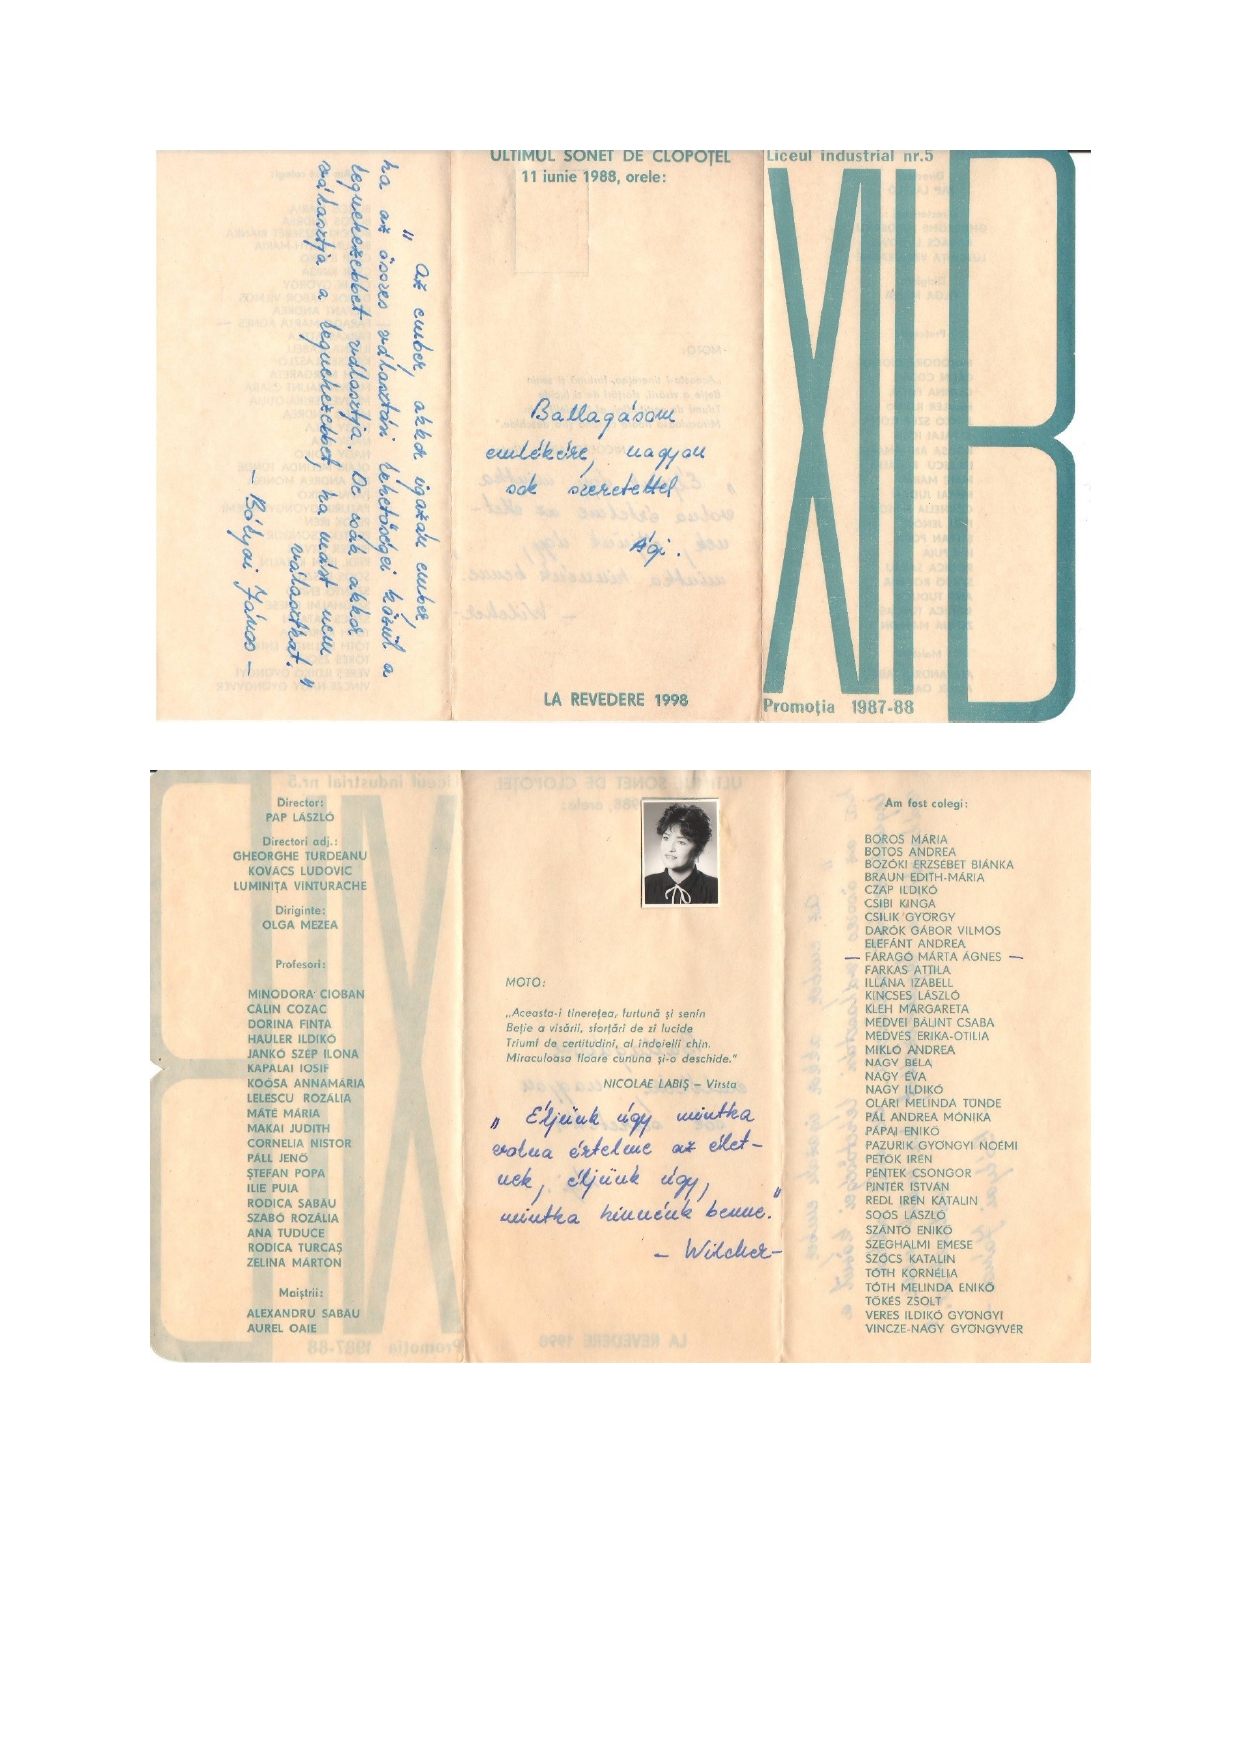 „Az ember, akkor igazán ember,
ha az összes választási lehetőségei közül a
legnehezebbet választja. De csak akkor
választja a legnehezebbet, ha mást nem
választhat."
- Bólyai János -
ULTIMUL SONET DE CLOPOȚEL
11 iunie 1988, orele:
Ballagásom
emlékére, nagyon
sok szeretettel
Ági.
LA REVEDERE 1998
Liceul industrial nr.5
XII B
Promoția 1987-88
Director:
PAP LÁSZLÓ
Directori adj.:
GHEORGHE TURDEANU
KOVACS LUDOVIC
LUMINIȚA VÎNTURACHE
Diriginte:
OLGA MEZEA
Profesori:
MINODORA CIOBAN
CĂLIN COZAC
DORINA FINTA
HAULER ILDIKÓ
JANKÓ SZÉP ILONA
KAPALAI IOSIF
KOÓSA ANNAMÁRIA
LELESCU ROZÁLIA
MÁTÉ MÁRIA
MAKAI JUDITH
CORNELIA NISTOR
PÁLL JENŐ
ȘTEFAN POPA
ILIE PUIA
RODICA SABĂU
SZABÓ ROZÁLIA
ANA TUDUCE
RODICA TURCAȘ
ZELINA MÁRTON
Maiștrii:
ALEXANDRU SABĂU
AUREL OAIE
MOTO:
„Aceasta-i tinerețea, furtună și senin
Beție a visării, sforțări de zi lucide
Triumf de certitudini, al îndoielii chin.
Miraculoasa floare cununa și-o deschide."
NICOLAE LABIȘ – Vîrsta
„Éljünk úgy mintha
volna értelme az élet-
nek, éljünk úgy,
mintha hinnénk benne."
- Wilcher-
Am fost colegi:
BOROS MÁRIA
BOTOS ANDREA
BOZÓKI ERZSÉBET BIÁNKA
BRAUN EDITH-MÁRIA
CZAP ILDIKÓ
CSIBI KINGA
CSILIK GYÖRGY
DARÓK GÁBOR VILMOS
ELEFÁNT ANDREA
— FARAGÓ MÁRTA ÁGNES —
FARKAS ATTILA
ILLÁNA IZABELL
KINCSES LÁSZLÓ
KLEH MARGARETA
MEDVEI BÁLINT CSABA
MEDVÉS ERIKA-OTILIA
MIKLÓ ANDREA
NAGY BÉLA
NAGY ÉVA
NAGY ILDIKÓ
OLARI MELINDA TÜNDE
PÁL ANDREA MÓNIKA
PÁPAI ENIKŐ
PAZURIK GYÖNGYI NOÉMI
PETÖK IRÉN
PÉNTEK CSONGOR
PINTÉR ISTVÁN
REDL IRÉN KATALIN
SOÓS LÁSZLÓ
SZÁNTÓ ENIKŐ
SZEGHALMI EMESE
SZŐCS KATALIN
TÓTH KORNÉLIA
TÓTH MELINDA ENIKŐ
TŐKÉS ZSOLT
VERES ILDIKÓ GYÖNGYI
VINCZE-NAGY GYÖNGYVÉR